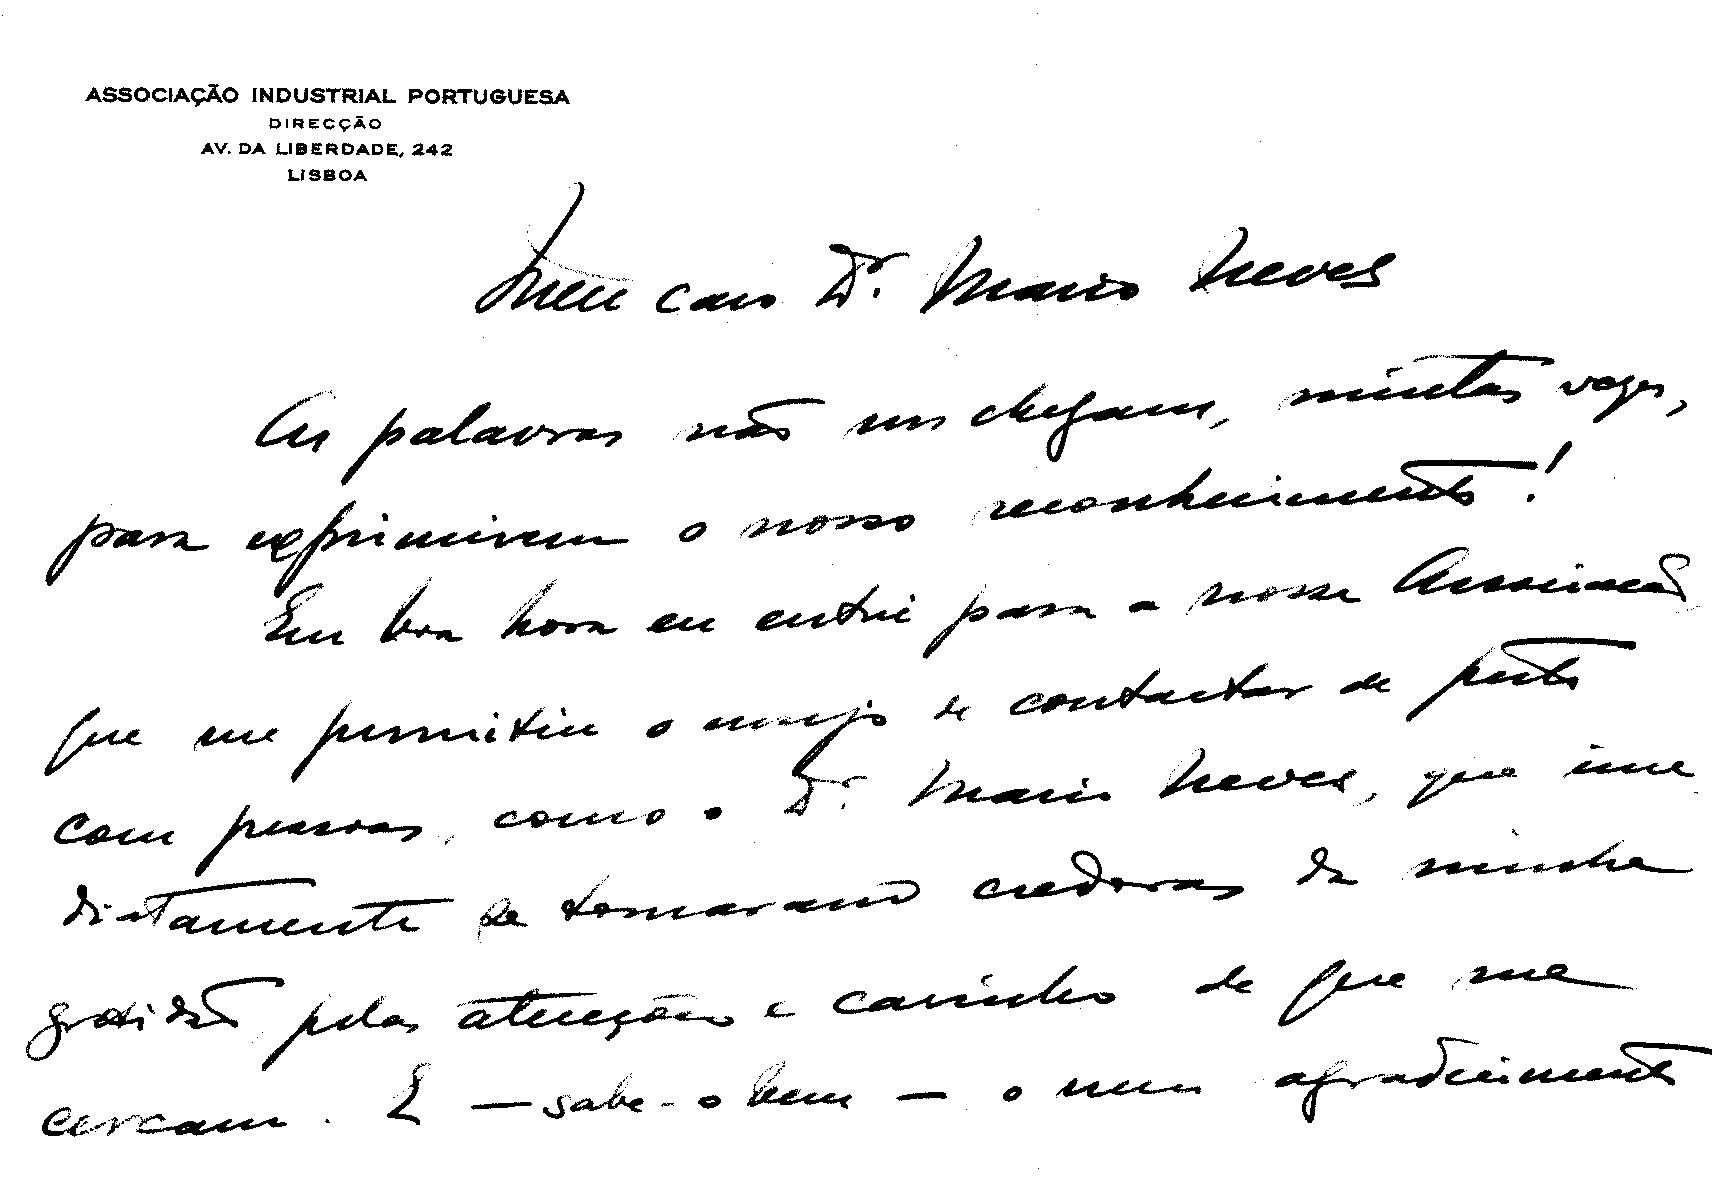 ASSOCIAÇÃO INDUSTRIAL PORTUGUESA
DIRECÇÃO
AV. DA LIBERDADE, 242
LISBOA
Meu caro Dr. Mario Neves
As palavras não nos chegam, muitas vezes,
para exprimirem o nosso reconhecimento!
Em boa hora eu entrei para a nossa Associação
que me permitiu o ensejo de contactar de perto
com pessoas, como o Dr. Mario Neves, que ime
diatamente se tornaram credoras da minha
gratidão pelas atenções e carinho de que me
cercam. E — sabe-o bem — o meu agradecimento